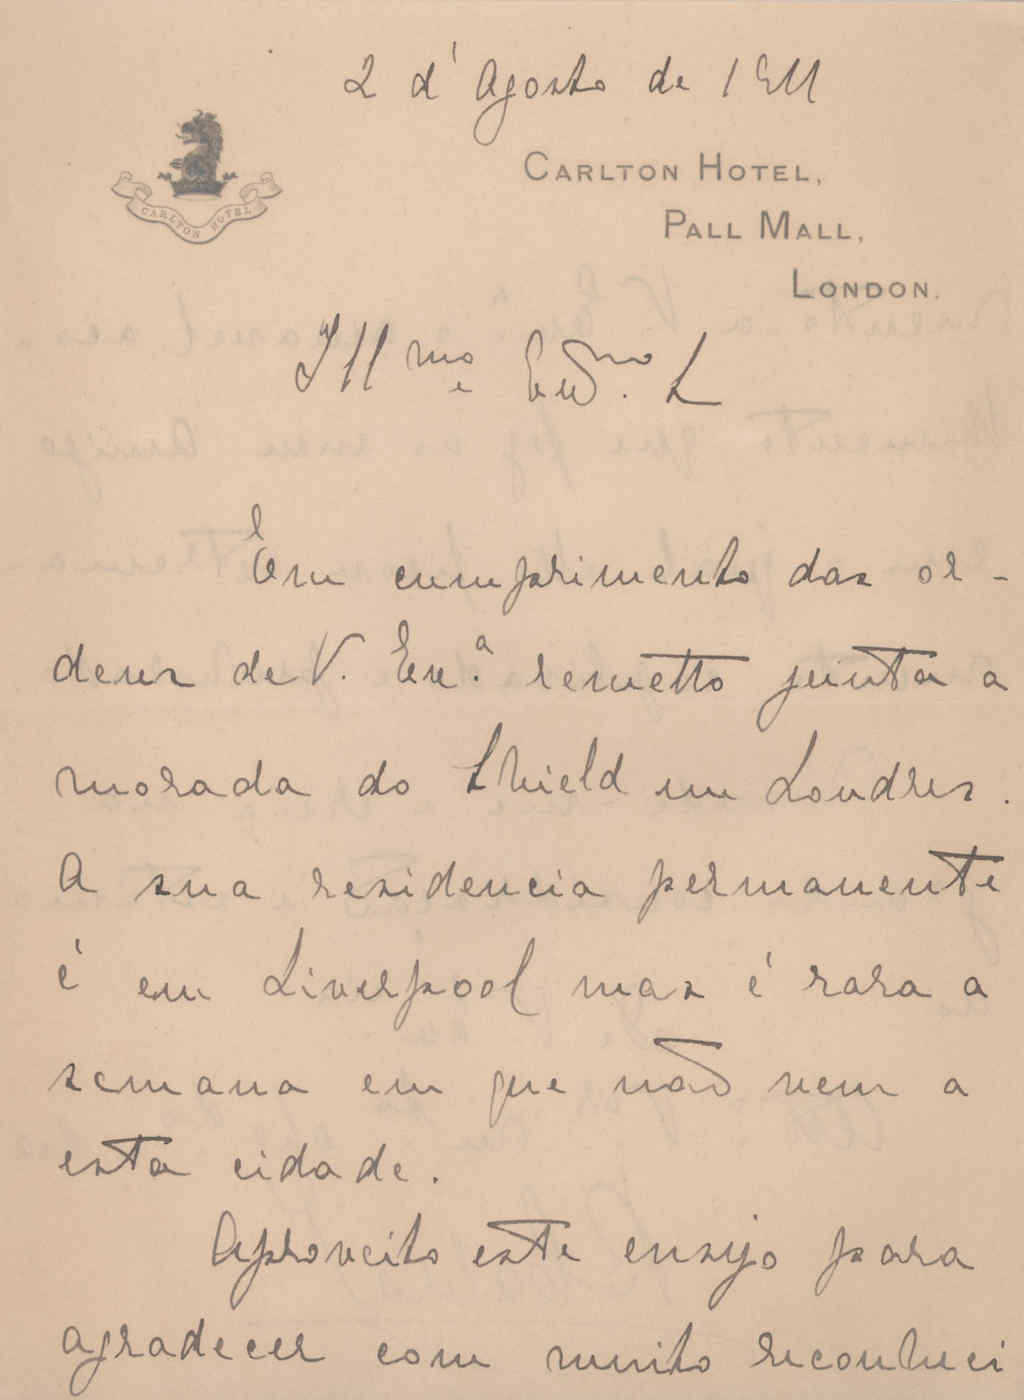 2 d'Agosto de 1911
CARLTON HOTEL
CARLTON HOTEL,
PALL MALL,
LONDON.
Illmo e Exmo. S
Em cumprimento das or-
dens de V. Exa. remetto junta a
morada do Shield em Londres.
A sua residencia permanente
é em Liverpool mas é rara a
semana em que não vem a
esta cidade.
Aproveito este ensejo para
agradecer com muito reconheci